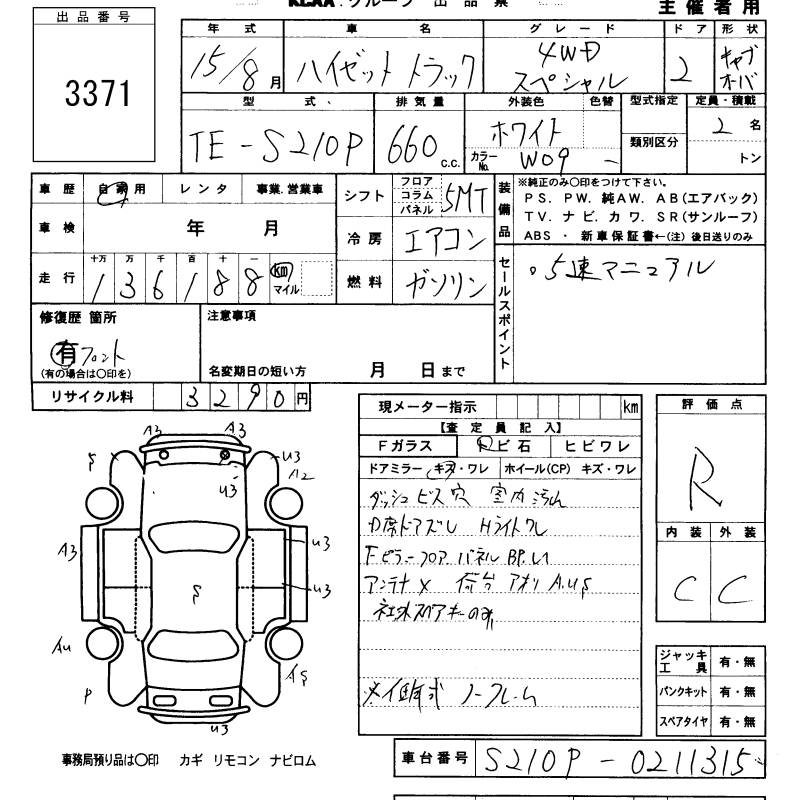 KCAA グループ 出品票 主催者用
出品番号
3371
年式 車名 グレード ドア 形状
15/8月 ハイゼット トラック 4WD スペシャル 2 キャブオーバ
型式 排気量 外装色 色替 型式指定 定員・積載
TE-S210P 660 c.c. ホワイト 類別区分 2名
カラーNo. W09 - トン
車歴 自家用 レンタ 事業.営業車 シフト フロア コラム パネル 5MT
装備品 ※純正のみ○印をつけて下さい。
PS. PW. 純AW. AB(エアバック)
TV. ナビ. カワ. SR(サンルーフ)
ABS ・ 新車保証書←(注) 後日送りのみ
車検 年 月 冷房 エアコン
走行 十万 万 千 百 十 一
136188 km マイル 燃料 ガソリン
セールスポイント 。5速マニュアル
修復歴 箇所 注意事項
有 フロント
(有の場合は○印を) 名変期日の短い方 月 日まで
リサイクル料 3290円
現メーター指示 km 評価点
【査定員記入】 R
Fガラス トビ石 ヒビワレ
ドアミラー キズ・ワレ ホイール(CP) キズ・ワレ
ダッシュ ビス穴 室内汚れ
D席ドアズレ Hライトワレ 内装 外装
Fピラー フロア パネル BP.U1
アンテナ× 荷台 アオリ A.U.S C C
社外スペアキーのみ
A3 A3
S U3 A2
U3
A3 U3
S U3
AU AS
P
U3
ジャッキ工具 有・無
パンクキット 有・無
スペアタイヤ 有・無
事務局預り品は○印 カギ リモコン ナビロム
車台番号 S210P-0211315